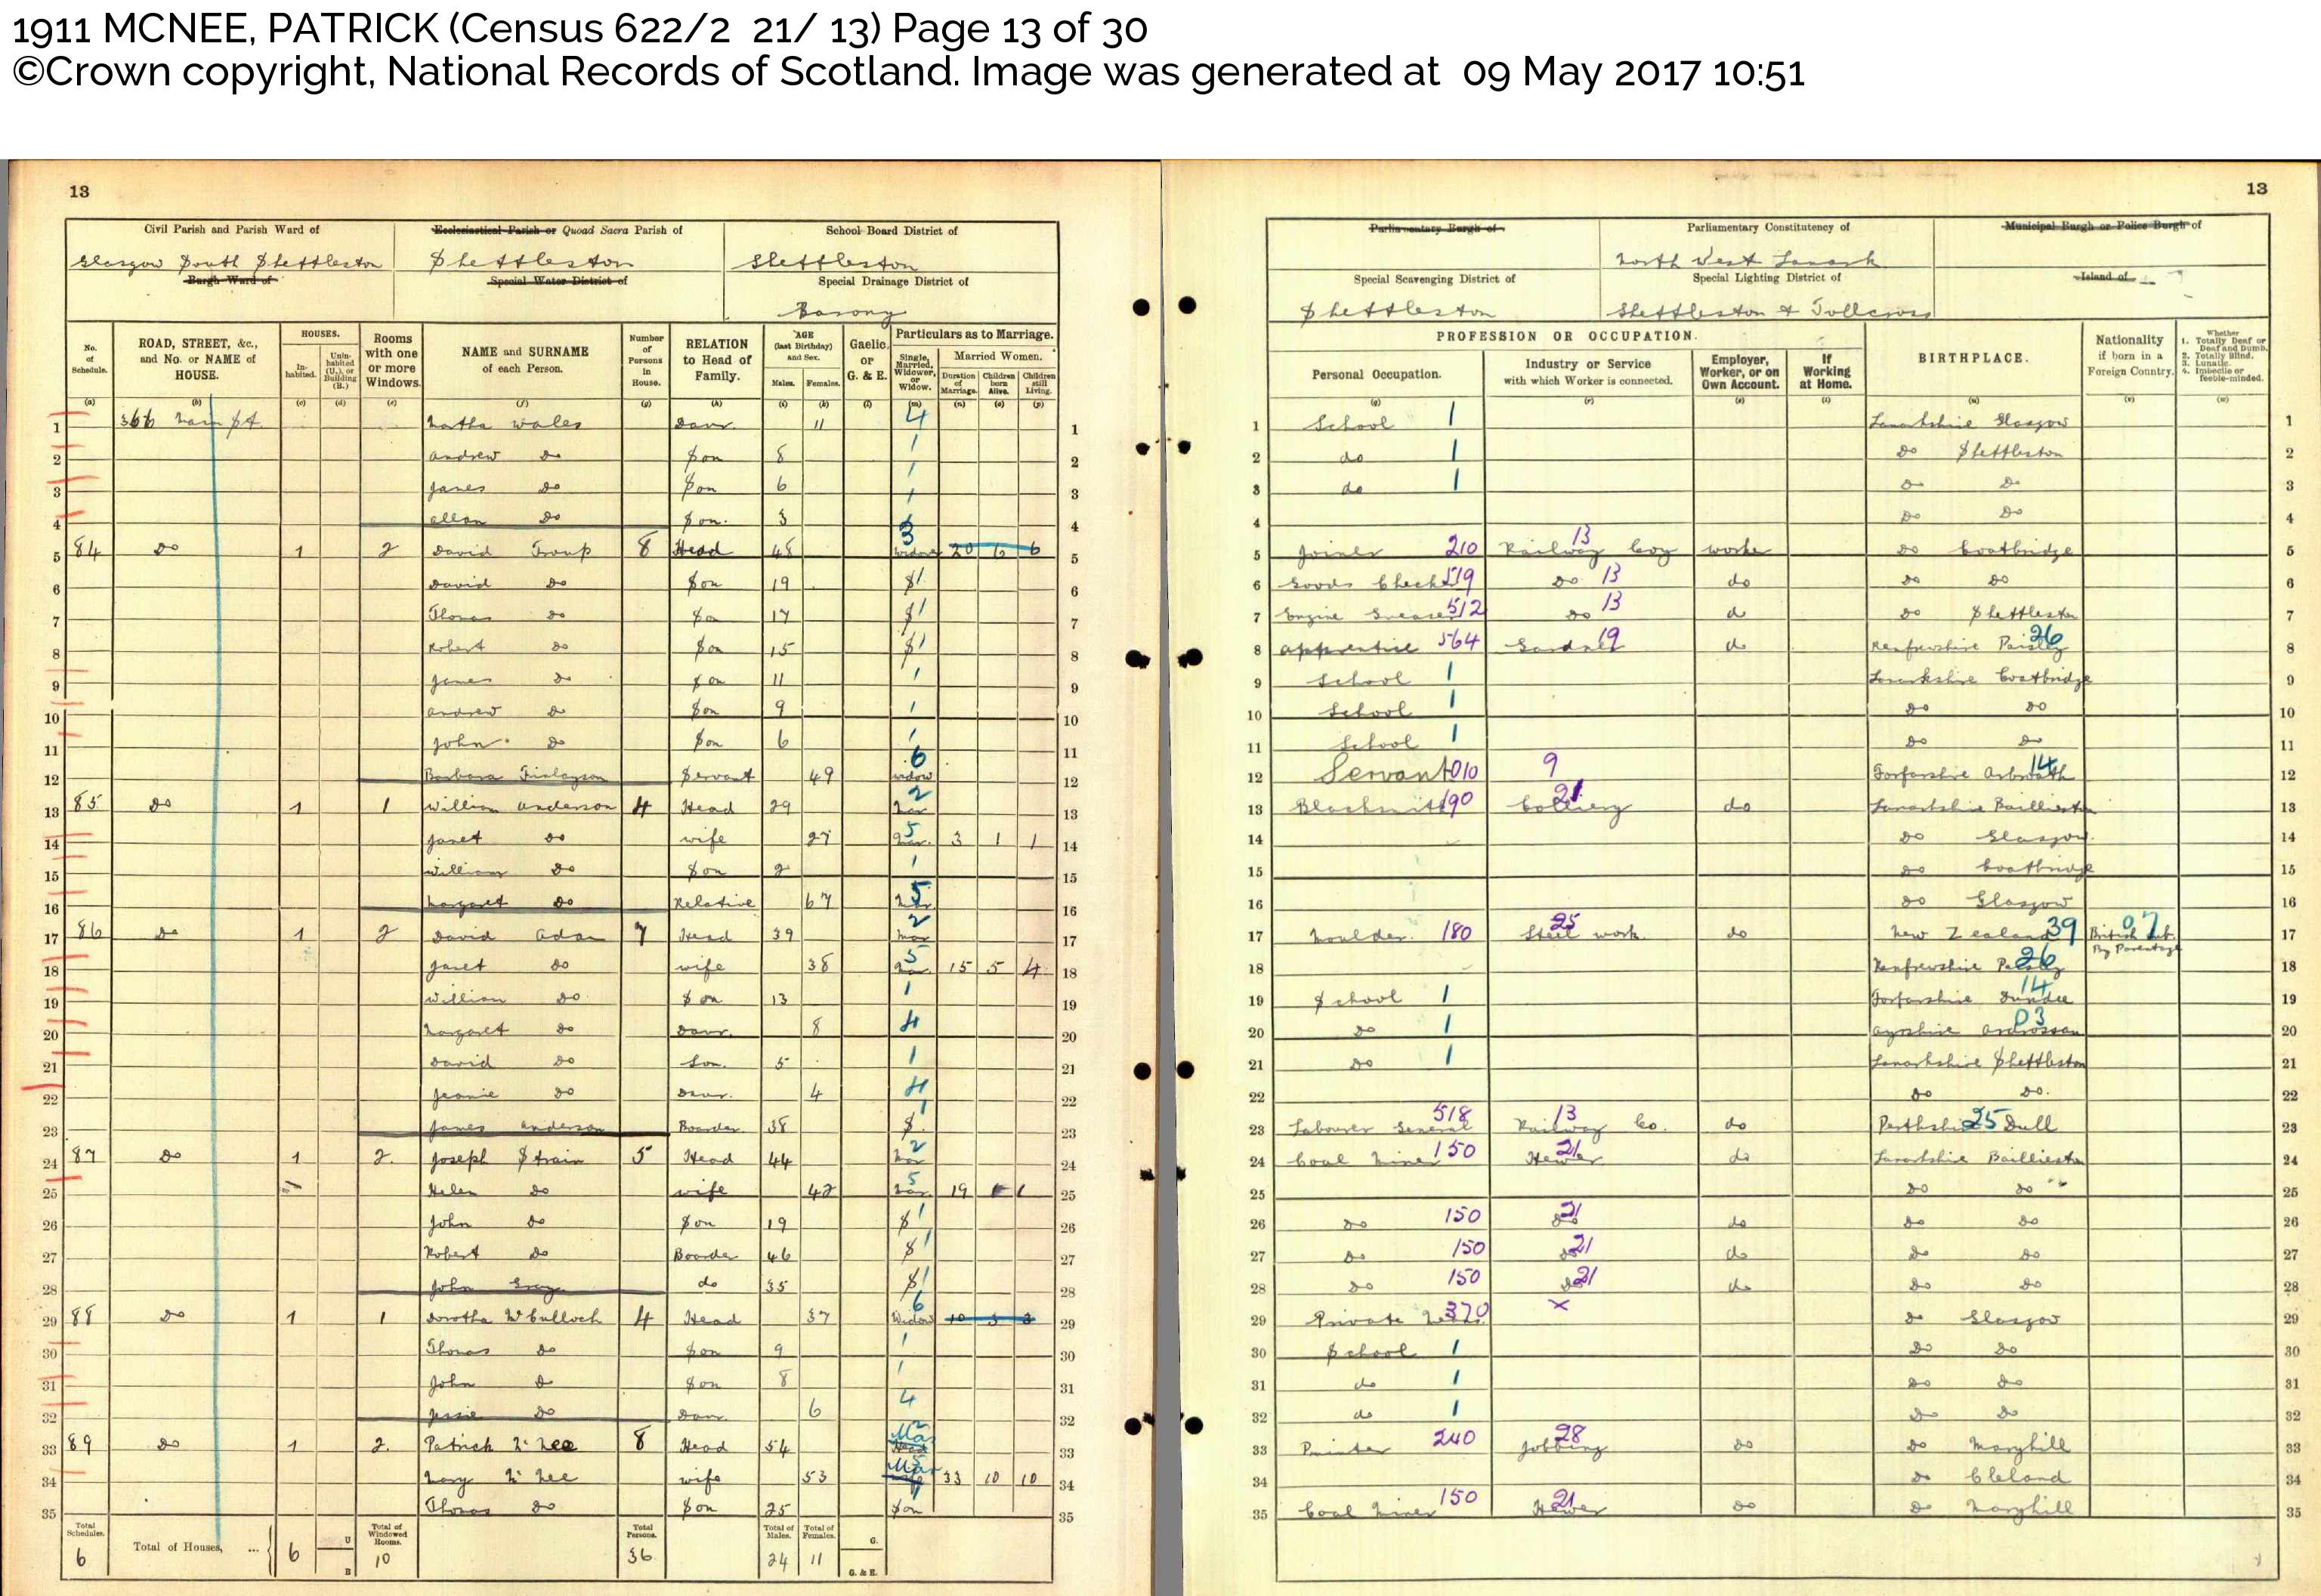 1911 MCNEE, PATRICK (Census 622/2 21/ 13) Page 13 of 30
©Crown copyright, National Records of Scotland. Image was generated at 09 May 2017 10:51
13
Civil Parish and Parish Ward of Ecclesiastical Parish or Quoad Sacra Parish of School Board District of
Glasgow South Shettleston Shettleston Shettleston
Burgh Ward of Special Water District of Special Drainage District of
Barony
No. of Schedule. ROAD, STREET, &c., and No. or NAME of HOUSE. HOUSES. Inhabited. Uninhabited (U.), or Building (B.) Rooms with one or more Windows. NAME and SURNAME of each Person. Number of Persons in House. RELATION to Head of Family. AGE (last Birthday) and Sex. Males. Females. Gaelic, or G. & E. Particulars as to Marriage. Single, Married, Widower, or Widow. Married Women. Duration of Marriage. Children born Alive. Children still Living.
(a) (b) (c) (d) (e) (f) (g) (h) (i) (k) (l) (m) (n) (o) (p)
1 366 Main St. Wales Daur. 11 4 1
2 Andrew do Son 8 1 2
3 James do Son 6 1 3
4 Allan do Son. 3 1 4
5 84 do 1 2 David Troup 8 Head 48 3 Widower 20 6 6 5
6 David do Son 19 S 1 6
7 Thomas do Son 17 S 1 7
8 Robert do Son 15 S 1 8
9 James do Son 11 1 9
10 Andrew do Son 9 1 10
11 John do Son 6 1 11
12 Barbara Finlayson Servant 49 6 Widow 12
13 85 do 1 1 William Anderson 4 Head 29 2 Mar 13
14 Janet do wife 27 5 Mar. 3 1 1 14
15 William do Son 2 1 15
16 Margaret do Relative 67 5 Mar 16
17 86 do 1 2 David Adam 7 Head 39 2 Mar 17
18 Janet do wife 38 5 Mar 15 5 4 18
19 William do Son 13 1 19
20 Margaret do Daur. 8 4 20
21 David do Son. 5 1 21
22 Jeanie do Daur. 4 4 22
23 James Anderson Boarder 38 S. 1 23
24 87 do 1 2. Joseph Strain 5 Head 44 2 Mar 24
25 Helen do wife 42 5 Mar. 19 1 1 25
26 John do Son 19 S 1 26
27 Robert do Boarder 46 S 1 27
28 John Gray do 35 S 1 28
29 88 do 1 1 Dorotha McCulloch 4 Head 37 6 Widow 10 3 3 29
30 Thomas do Son 9 1 30
31 John do Son 8 1 31
32 Jessie do Daur. 6 4 32
33 89 do 1 2. Patrick McNee 8 Head 54 Mar 33
34 Mary McNee wife 53 Mar 33 10 10 34
35 Thomas do Son 25 Son 35
Total Schedules. 6 Total of Houses, ... 6 U B Total of Windowed Rooms. 10 Total Persons. 36 Total of Males. 24 Total of Females. 11 G. G. & E.
13
Parliamentary Burgh of Parliamentary Constitutency of Municipal Burgh or Police Burgh of
North West Lanark
Special Scavenging District of Special Lighting District of Island of
Shettleston Shettleston & Tollcross
PROFESSION OR OCCUPATION. Personal Occupation. Industry or Service with which Worker is connected. Employer, Worker, or on Own Account. If Working at Home. BIRTHPLACE. Nationality if born in a Foreign Country. Whether 1. Totally Deaf or Deaf and Dumb. 2. Totally Blind. 3. Lunatic. 4. Imbecile or feeble-minded.
(q) (r) (s) (t) (u) (v) (w)
1 School 1 Lanarkshire Glasgow 1
2 do 1 do Shettleston 2
3 do 1 do do 3
4 do do 4
5 Joiner 210 Railway Coy 13 worker do Coatbridge 5
6 Goods Checker 519 do 13 do do do 6
7 Engine Greaser 512 do 13 do do Shettleston 7
8 Apprentice 564 19 do Renfrewshire Paisley 26 8
9 School 1 Lanarkshire Coatbridge 9
10 School 1 do do 10
11 School 1 do do 11
12 Servant 010 9 Forfarshire Arbroath 14 12
13 Blacksmith 190 Colliery 21 do Lanarkshire Baillieston 13
14 do Glasgow. 14
15 do Coatbridge 15
16 do Glasgow 16
17 Moulder. 180 Steel work. 25 do New Zealand 39 British Sub. By Parentage 07 17
18 Renfrewshire Paisley 26 18
19 School 1 Forfarshire Dundee 14 19
20 do 1 Ayrshire Ardrossan 03 20
21 do 1 Lanarkshire Shettleston 21
22 do do. 22
23 Labourer General 518 Railway Co. 13 do Perthshire 25 Dull 23
24 Coal Miner 150 Hewer 21 do Lanarkshire Baillieston 24
25 do do 25
26 do 150 do 21 do do do 26
27 do 150 do 21 do do do 27
28 do 150 do 21 do do do 28
29 Private 370 × do Glasgow 29
30 School 1 do do 30
31 do 1 do do 31
32 do 1 do do 32
33 Painter 240 Jobbing 28 do do Maryhill 33
34 do Cleland 34
35 Coal Miner 150 Hewer 21 do do Maryhill 35